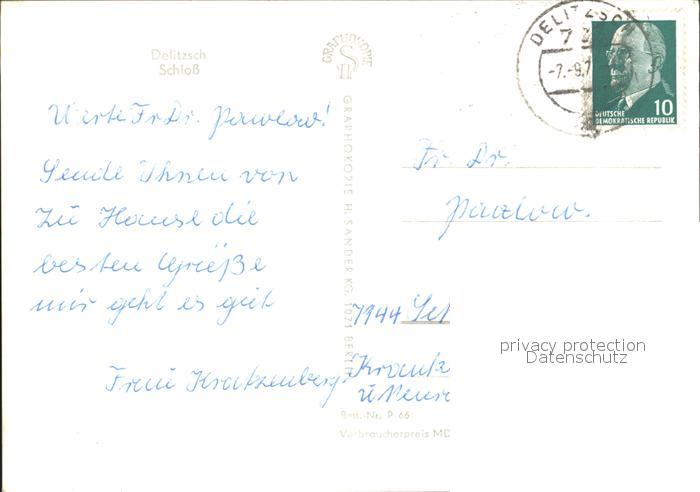 Delitzsch
Schloß
Werte Fr Dr. Pawlow!
Sende Ihnen von
zu Hause die
besten Grüße
mir geht es gut
Frau Kratzenberg
GRAPHOKOPIE
GRAPHOKOPIE H. SANDER KG, 1071 BERLIN
DELITZSCH
-7.-9.7
10
DEUTSCHE
DEMOKRATISCHE REPUBLIK
Fr. Dr.
Pawlow.
7944
Krank
Best.-Nr. P 66
Verbraucherpreis MD
privacy protection
Datenschutz